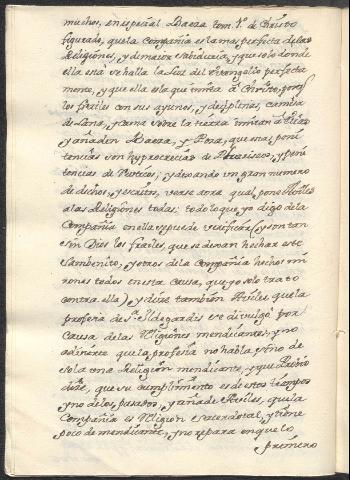 muchos, en especial Baeza tom. 1.º de Christo
figurado, que la Compañia es la mas perfecta de las
Religiones, y de maior sabiduria, y que solo donde
ella està se halla la luz del Evangelio perfecta
mente, y que ella es la que imita à Christo, porq
los frailes con sus ayunos, y deziplinas, camisa
de Lana, y cama sobre la tierra imitan à Elias
y añaden Baeza, y Roa, que esas peni
tencias son hypocrecias de Phariseos, y peni
tencias de Perros; y dexando un gran numero
de dichos, y escritos, verse aora qual pone Aviles
a las Religiones todas: todo lo que yo digo de la
Compañia en ella se puede verificar (y son tan
sin Dios los frailes, que se devan hechar este
Sambenito, y otros de la Compañia hechos mi
rones todos en esta causa, que yo solo trato
contra ella) y dize tambien Aviles que la
profesia de S.ª Ildegardis se divulgò por
Causa de las Religiones mendicantes, y no
advierte que la profesia no habla sino de
sola una Religion mendicante, y que
dize, que su cumplimiento es de estos tiempos
y no de los pasados, y añade Aviles, que la
Compañia es Religion Sacerdotal, y tiene
poco de mendicante, y no repara en que lo
primero